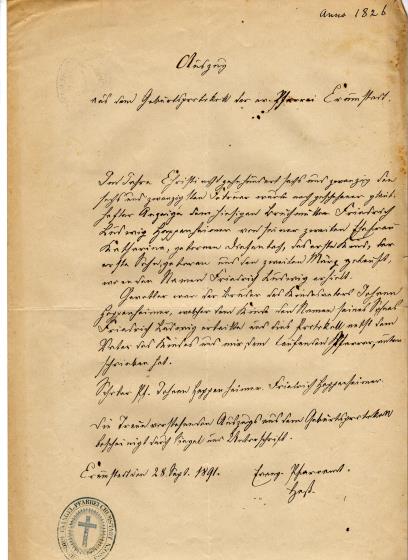 Anno 1826
Auszug
aus dem Geburtsprotokoll der ev. Pfarrei Crumstadt.
Im Jahre Christi achtzehnhundert sechs und zwanzig den
sechs und zwanzigsten Februar wurde nach geschehener glaub-
hafter Anzeige dem hiesigen Friedrich
Ludwig Heppenheimer von seiner zweiten Ehefrau
Katharina, geborene das erste Kind, der
erste Sohn, geboren und den zweiten März getauft,
wobei den Namen Friedrich Ludwig erhielt.
Gevatter war der Bruder des Kindesvaters Johann
Heppenheimer, welcher dem Kinde den Namen seines Sohnes
Friedrich Ludwig ertheilte und dies Protokoll nebst dem
Vater des Kindes und mir dem Pfarrer, unter-
schrieben hat.
Pfr. Johann Heppenheimer. Friedrich Heppenheimer.
Die Treue vorstehenden Auszugs aus dem Geburtsprotokoll
bescheinigt durch Siegel und Unterschrift.
Crumstadt den 28. Sept. 1891. Evang. Pfarramt.